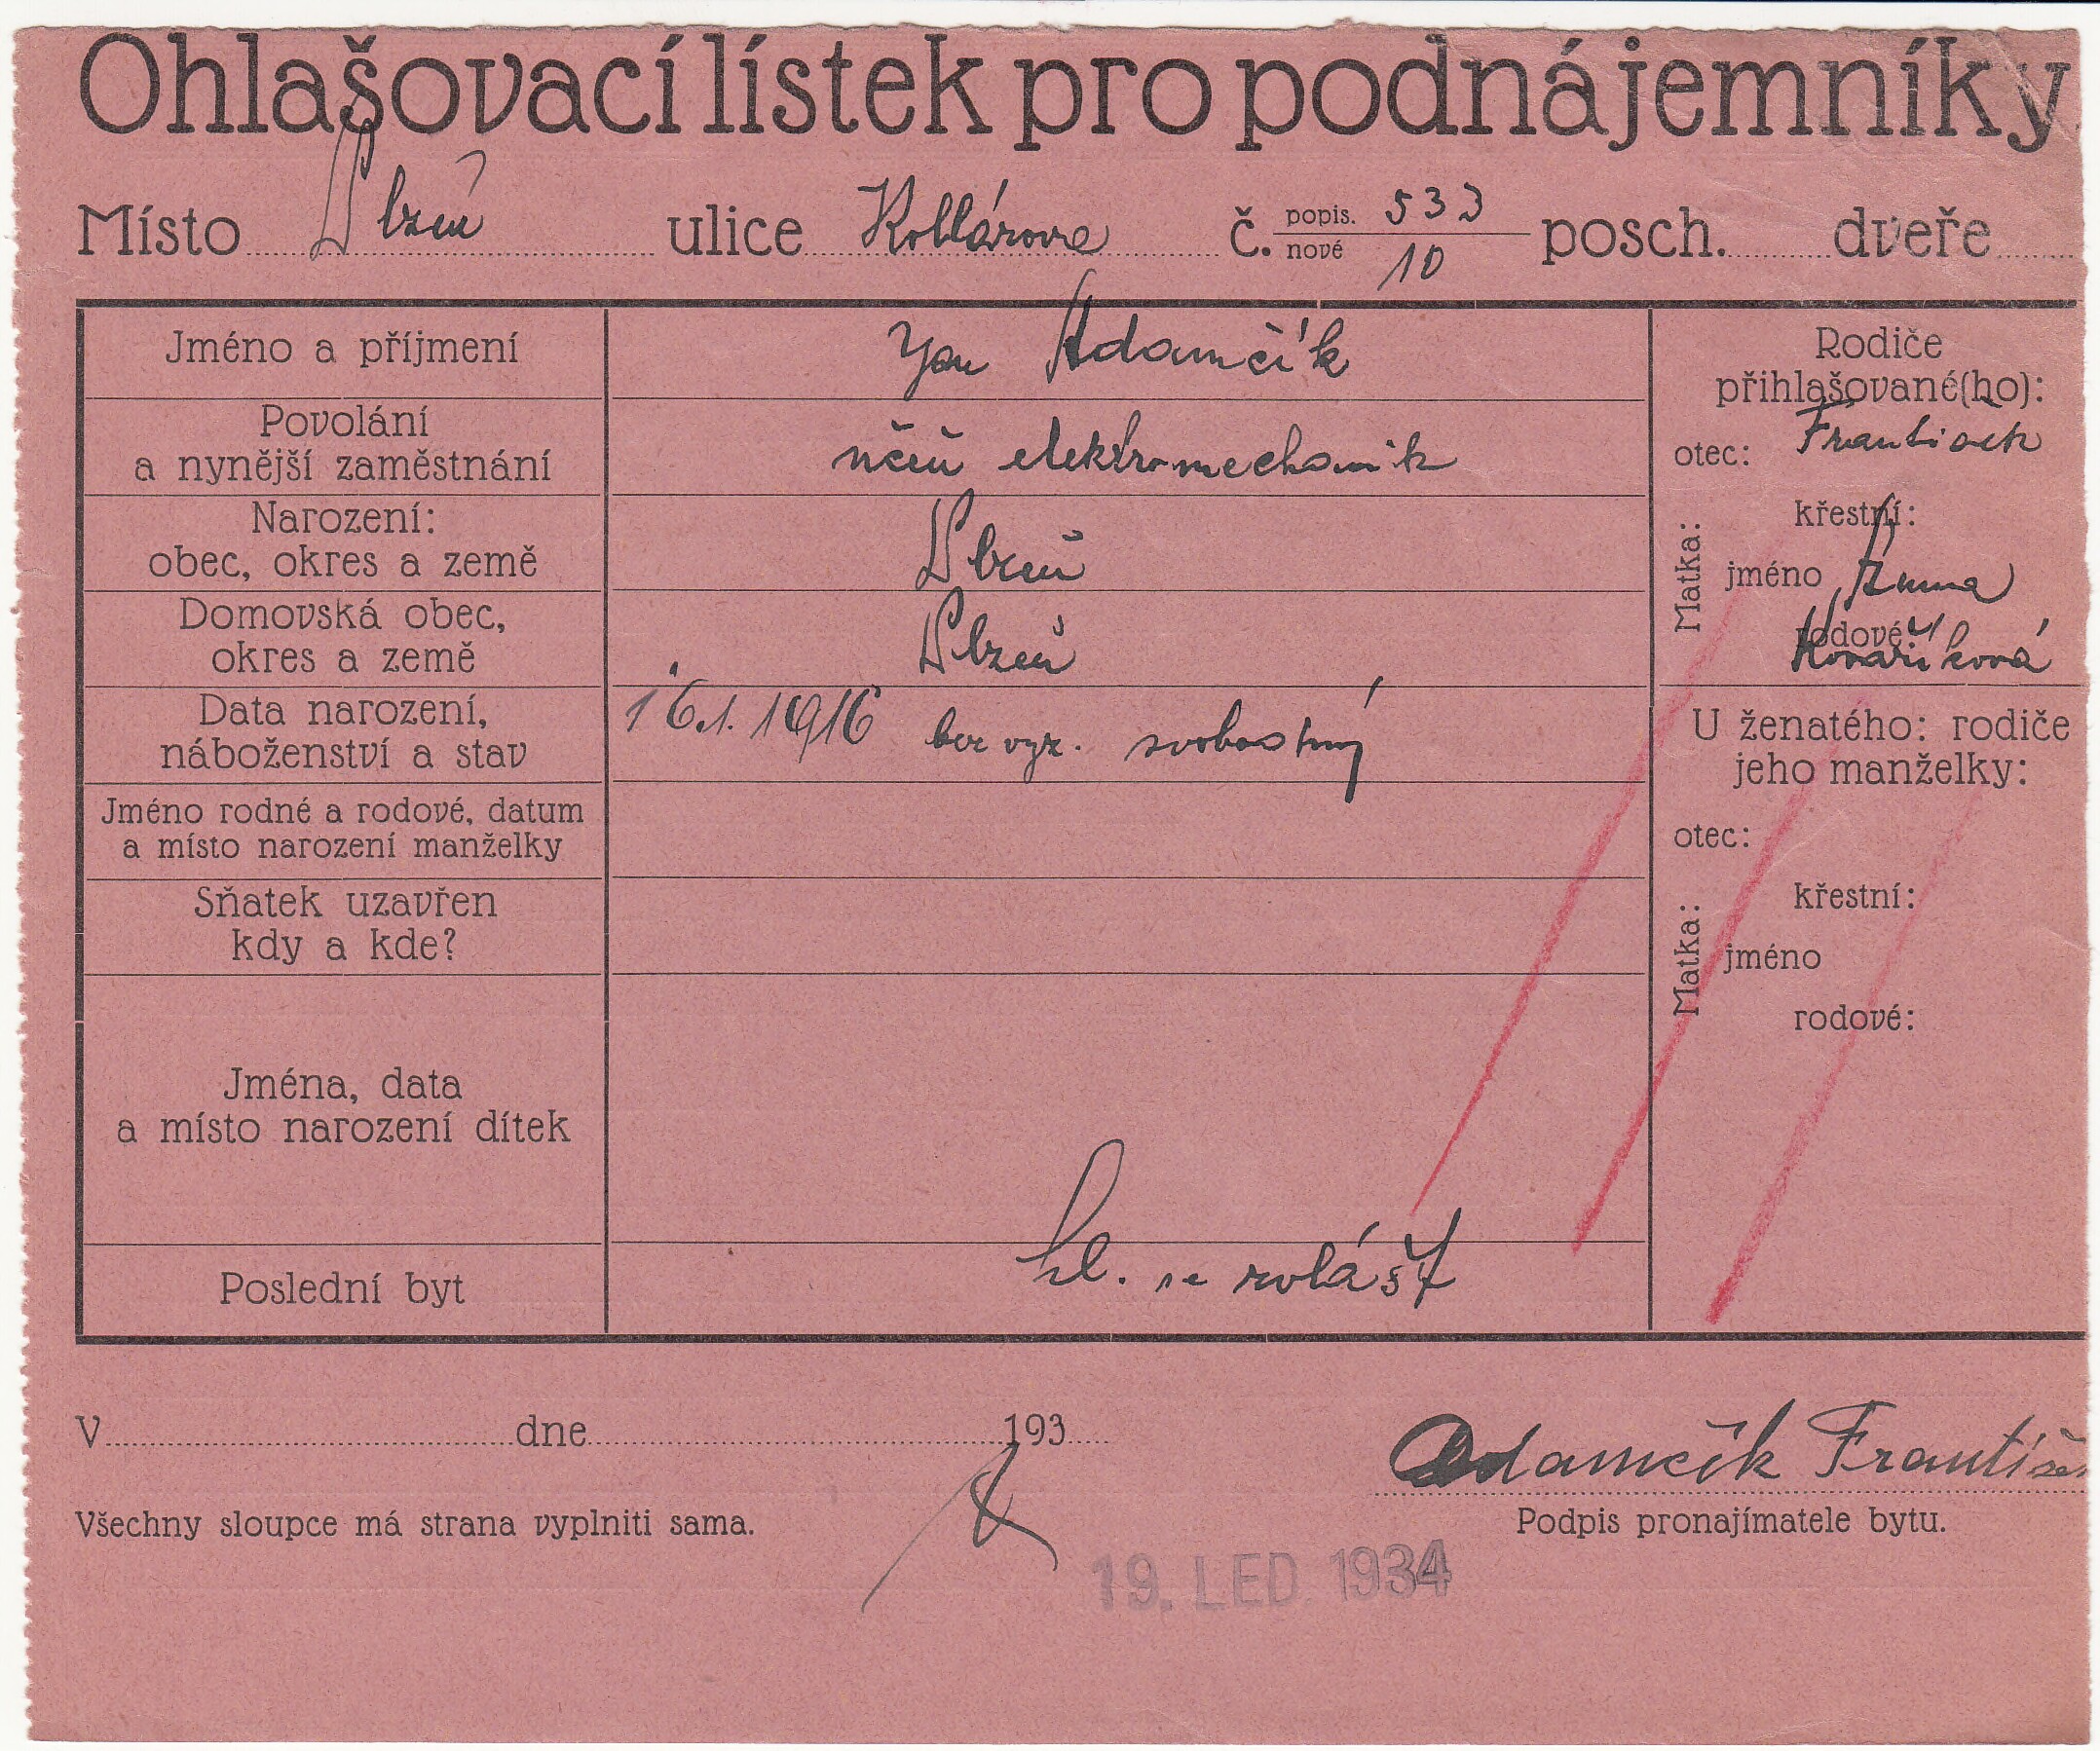 Ohlašovací lístek pro podnájemníky
Místo Plzeň ulice Kollárova č. popis. 533 nové 10 posch. dveře
Jméno a příjmení
Jan Adamčík
Povolání
a nynější zaměstnání
učeň elektromechanik
Narození:
obec, okres a země
Plzeň
Domovská obec,
okres a země
Plzeň
Data narození,
náboženství a stav
16.1.1916 bez vyz. svobodný
Jméno rodné a rodové, datum
a místo narození manželky
Sňatek uzavřen
kdy a kde?
Jména, data
a místo narození dítek
Poslední byt
hl. se zvlášť
Rodiče
přihlašované(ho):
otec: František
Matka:
křestní:
jméno Anna
rodové:
Kovaříková
U ženatého: rodiče
jeho manželky:
otec:
Matka:
křestní:
jméno
rodové:
V dne 193
Adamčík František
Všechny sloupce má strana vyplniti sama.
Podpis pronajímatele bytu.
19. LED. 1934